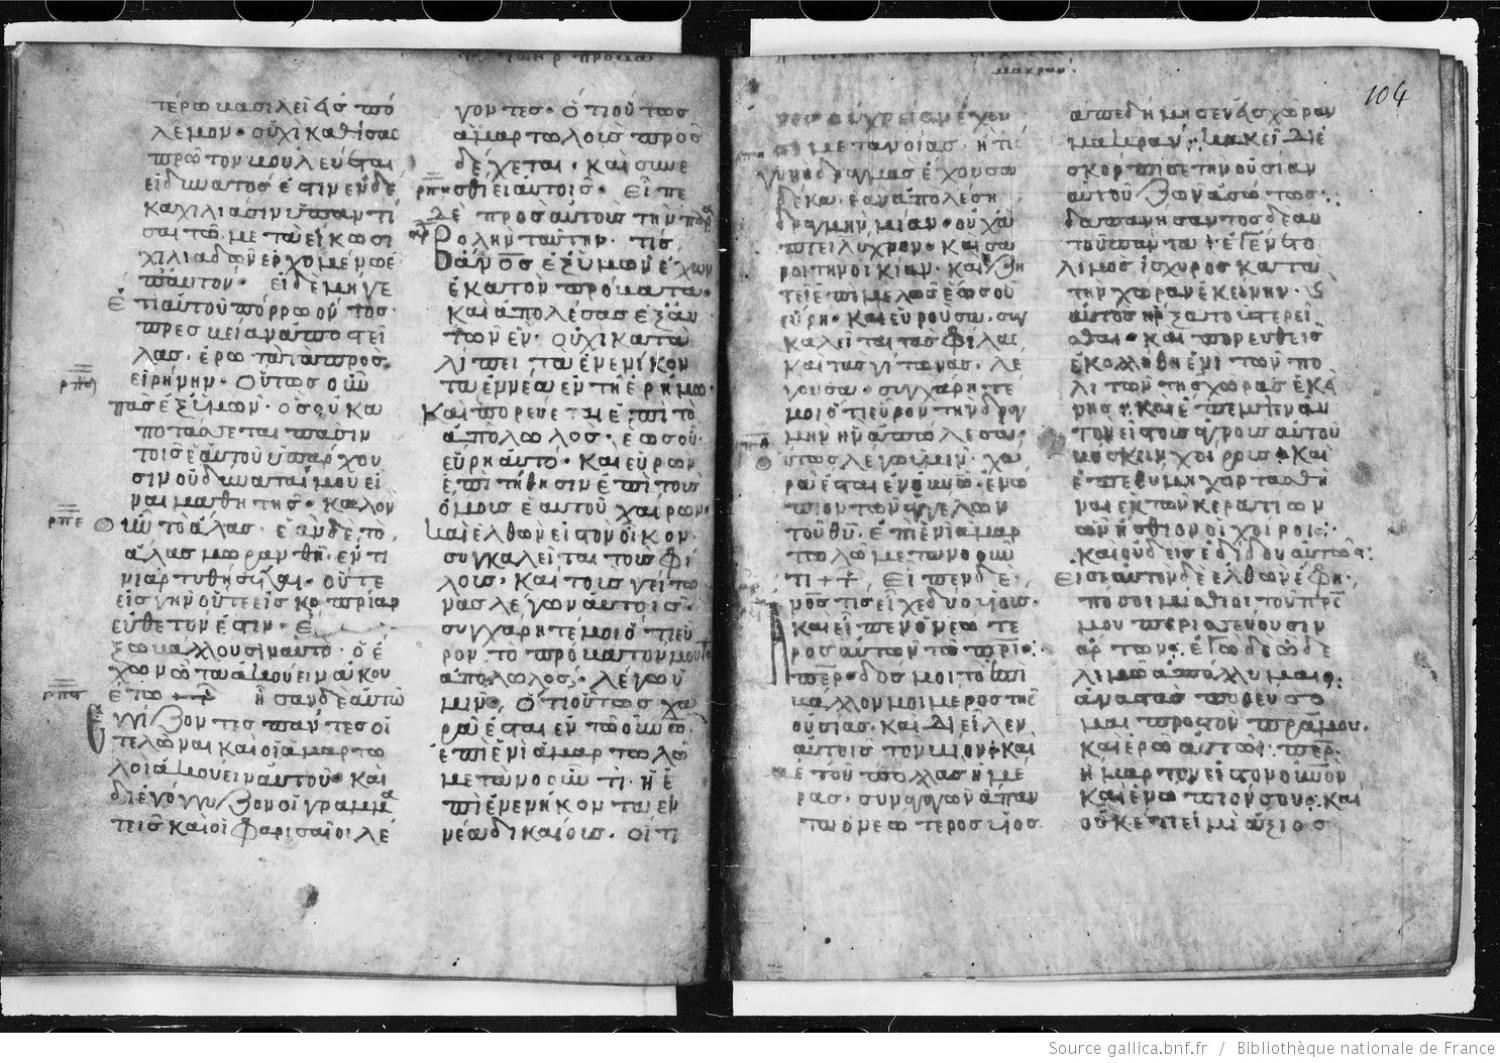 τέρω βασιλεῖ εἰς πό
λεμον· οὐχὶ καθίσας
πρῶτον βουλεύεται
εἰ δυνατός ἐστιν ἐν δέ
κα χιλιάσιν ὑπαντῆ
σαι τῶ μετὰ εἴκοσι
χιλιάδων ἐρχομένω ἐ
π᾽ αὐτόν· εἰ δὲ μήγε
ἔτι αὐτοῦ πόρρω ὄντος·
πρεσβείαν ἀποστεί
λας· ἐρωτᾶ τὰ πρὸς
εἰρήνην· Οὕτως οὖν
πᾶς ἐξ ὑμῶν· ὃς οὐκ ἀ
ποτάσσεται πᾶσιν
τοῖς ἑαυτοῦ ὑπάρχου
σιν οὐ δύναταί μου εἶ
ναι μαθητής· καλὸν
οὖν τὸ ἅλας· ἐὰν δὲ τὸ
ἅλας μωρανθῆ· ἐν τί
νι ἀρτυθήσεται· οὔτε
εἰς γῆν οὔτε εἰς κοπρίαν
εὔθετόν ἐστιν· ἔ
ξω βάλλουσιν αὐτό· ὁ ἔ
χων ὦτα ἀκούειν ἀκου
έτω ἦσαν δὲ αὐτῶ
ἐγγίζοντες πάντες οἱ
τελῶναι καὶ οἱ ἁμαρτω
λοὶ ἀκούειν αὐτοῦ· καὶ
διεγόγγυζον οἱ γραμμα
τεῖς καὶ οἱ φαρισαῖοι λέ
γοντες· ὅτι οὗτος
ἁμαρτωλοὺς προσ
δέχεται· καὶ συνε
σθίει αὐτοῖς· Εἶπε
δὲ πρὸς αὐτοὺς τὴν πα
ραβολὴν ταύτην· τίς
ἄνος ἐξ ὑμῶν ἔχων
ἑκατὸν πρόβατα·
καὶ ἀπολέσας ἐξ αὐ
τῶν ἕν· οὐχὶ κατα
λείπει τὰ ἐνενήκον
τα ἐννέα ἐν τῆ ἐρήμω·
Καὶ πορεύεται ἐπὶ τὸ
ἀπολωλός· ἕως οὗ
εὕρη αὐτό· καὶ εὑρὼν
ἐπιτίθησιν ἐπὶ τοὺς
ὤμους ἑαυτοῦ χαίρων·
καὶ ἐλθὼν εἰς τὸν οἶκον·
συγκαλεῖται τοὺς φί
λους· καὶ τοὺς γείτο
νας λέγων αὐτοῖς·
συγχάρητέ μοι ὅτι εὗ
ρον τὸ πρόβατόν μου τὸ
ἀπολωλός· λέγω ὑ
μῖν, ὅτι οὕτως χα
ρὰ ἔσται ἐν τῶ οὐνῶ·
ἐπὶ ἑνὶ ἁμαρτωλῶ
μετανοοῦντι· ἢ ἐ
πὶ ἐνενήκοντα ἐν
νέα δικαίοις· οἵτι
104
νες οὐ χρείαν ἔχου
σι μετανοίας· ἢ τίς
γυνὴ δραχμὰς ἔχουσα
δέκα· ἐὰν ἀπολέση
δραχμὴν μίαν· οὐχὶ ἅ
πτει λύχνον· καὶ σα
ροῖ τὴν οἰκίαν· καὶ ζη
τεῖ ἐπιμελῶς ἕως οὗ
εὕρη· καὶ εὑροῦσα· συγ
καλεῖται τὰς φίλας
καὶ τὰς γίτονας· λέ
γουσα· συγχάρητέ
μοι ὅτι εὗρον τὴν δραχ
μὴν ἣν ἀπώλεσα·
οὕτως λέγω ὑμῖν· χα
ρὰ ἔσται ἐνώπιον
τῶν ἀγγέλων
τοῦ θυ· ἐπὶ ἑνὶ ἁμαρ
τωλῶ μετανοοῦν
τι Εἶπεν δέ·
ἄνος τις εἶχε δύο υἱούς·
καὶ εἶπεν ὁ νεώτε
ρος αὐτῶν τῶ πρι·
περ· δός μοι τὸ ἐπι
βάλλον μοι μέρος τῆς
οὐσίας· καὶ διεῖλεν
αὐτοῖς τὸν βίον· καὶ
μετ᾽ οὐ πολλὰς ἡμέ
ρας· συναγαγὼν ἅπαν
τα ὁ νεώτερος υἱὸς
ἀπεδήμησεν εἰς χώραν
μακράν· κακεῖ διε
σκόρπισε τὴν οὐσίαν
αὐτοῦ ζῶν ἀσώτως·
δαπανήσαντος δὲ αὐ
τοῦ πάντα· ἐγένετο
λιμὸς ἰσχυρὸς κατὰ
τὴν χώραν ἐκείνην·
αὐτὸς ἤρξατο ὑστερεῖ
σθαι· καὶ πορευθεὶς
ἐκολλήθη ἑνὶ τῶν πο
λιτῶν τῆς χώρας ἐκεί
νης· καὶ ἔπεμψεν αὐ
τὸν εἰς τοὺς ἀγροὺς αὐτοῦ
βόσκειν χοίρους· καὶ
ἐπεθύμη χορτασθῆ
ναι ἐκ τῶν κερατίων
ὧν ἤσθιον οἱ χοῖροι·
καὶ οὐδεὶς ἐδίδου αὐτῶ·
Εἰς ἑαυτὸν δὲ ἐλθὼν ἔφη·
πόσοι μίσθιοι τοῦ πρς
μου περισσεύουσιν
ἄρτων· ἐγὼ δὲ ὧδε
λιμῶ ἀπόλλυμαι·
ἀναστὰς πορεύσο
μαι πρὸς τὸν πρα μου·
καὶ ἐρῶ αὐτῶ· περ·
ἥμαρτον εἰς τὸν οὐνον
καὶ ἐνώπιόν σου· καὶ
οὐκέτι εἰμὶ ἄξιος
Source gallica.bnf.fr / Bibliothèque nationale de France